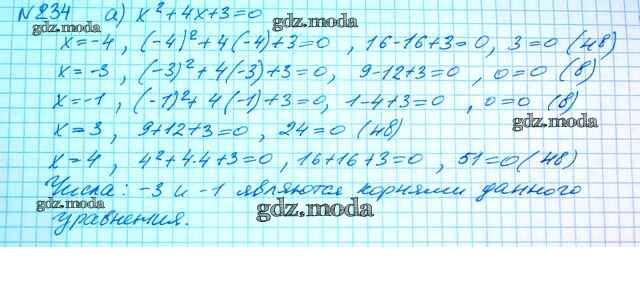 №234 а) x²+4x+3=0
x=-4, (-4)²+4(-4)+3=0, 16-16+3=0, 3=0 (48)
x=-3, (-3)²+4(-3)+3=0, 9-12+3=0, 0=0 (8)
x=-1, (-1)²+4(-1)+3=0, 1-4+3=0, 0=0 (8)
x=3, 9+12+3=0, 24=0 (48)
x=4, 4²+4·4+3=0, 16+16+3=0, 51=0 (48)
Числа: -3 и -1 являются корнями данного
уравнения.
gdz.moda
gdz.moda
gdz.moda
gdz.moda
gdz.moda